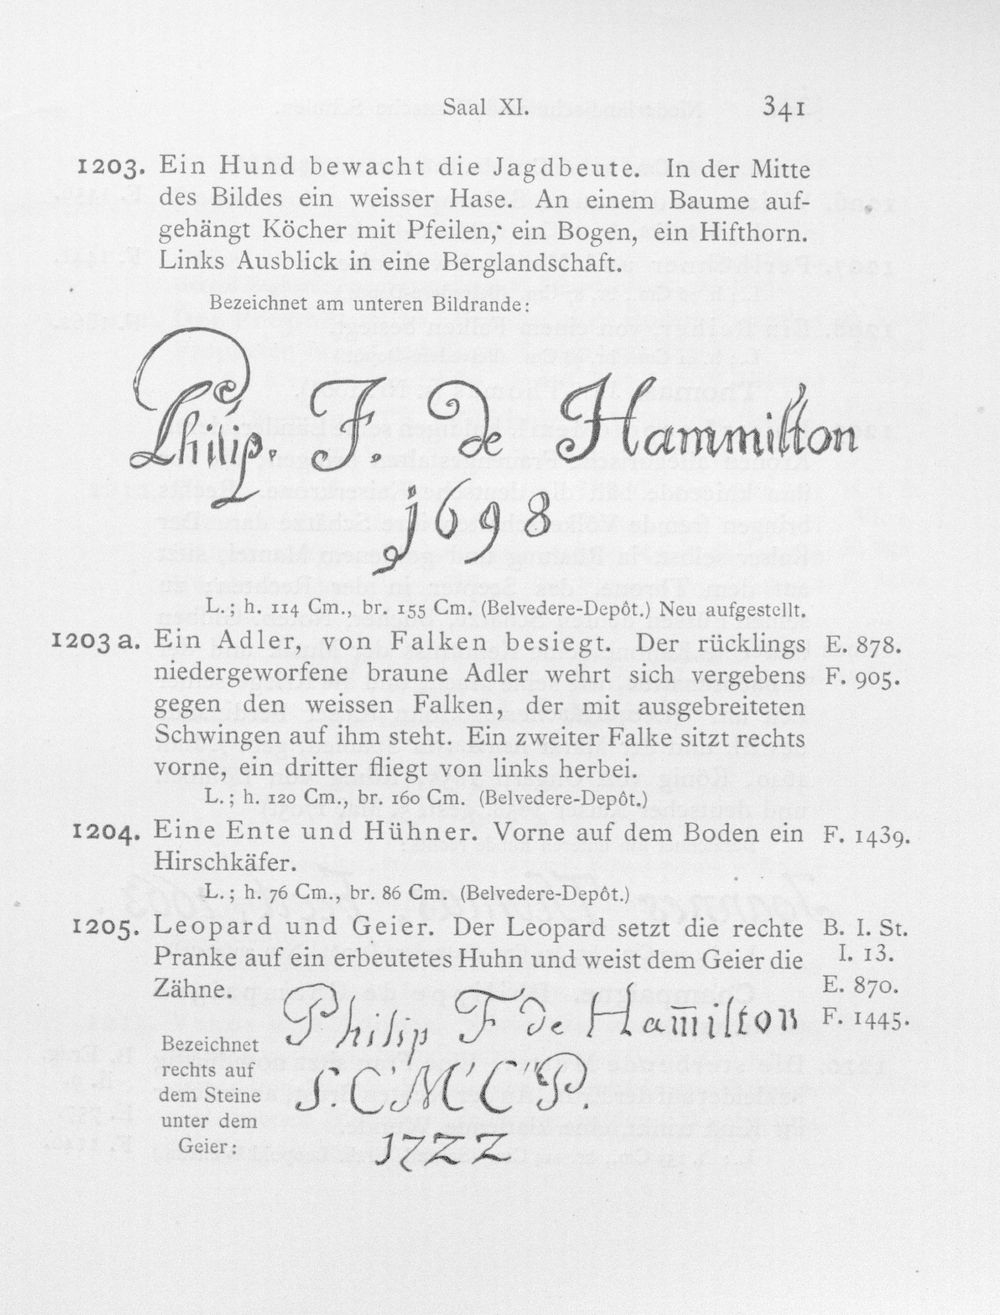 Saal XI. 341
1203. Ein Hund bewacht die Jagdbeute. In der Mitte
des Bildes ein weisser Hase. An einem Baume auf-
gehängt Köcher mit Pfeilen, ein Bogen, ein Hifthorn.
Links Ausblick in eine Berglandschaft.
Bezeichnet am unteren Bildrande:
Philip. F. de Hammilton
1698
L.; h. 114 Cm., br. 155 Cm. (Belvedere-Depôt.) Neu aufgestellt.
1203 a. Ein Adler, von Falken besiegt. Der rücklings E. 878.
niedergeworfene braune Adler wehrt sich vergebens F. 905.
gegen den weissen Falken, der mit ausgebreiteten
Schwingen auf ihm steht. Ein zweiter Falke sitzt rechts
vorne, ein dritter fliegt von links herbei.
L.; h. 120 Cm., br. 160 Cm. (Belvedere-Depôt.)
1204. Eine Ente und Hühner. Vorne auf dem Boden ein F. 1439.
Hirschkäfer.
L.; h. 76 Cm., br. 86 Cm. (Belvedere-Depôt.)
1205. Leopard und Geier. Der Leopard setzt die rechte B. I. St.
Pranke auf ein erbeutetes Huhn und weist dem Geier die I. 13.
Zähne. E. 870.
Philip F de Ham̄ilton F. 1445.
Bezeichnet
rechts auf
dem Steine
unter dem
Geier:
S. C. M. C. P.
1722